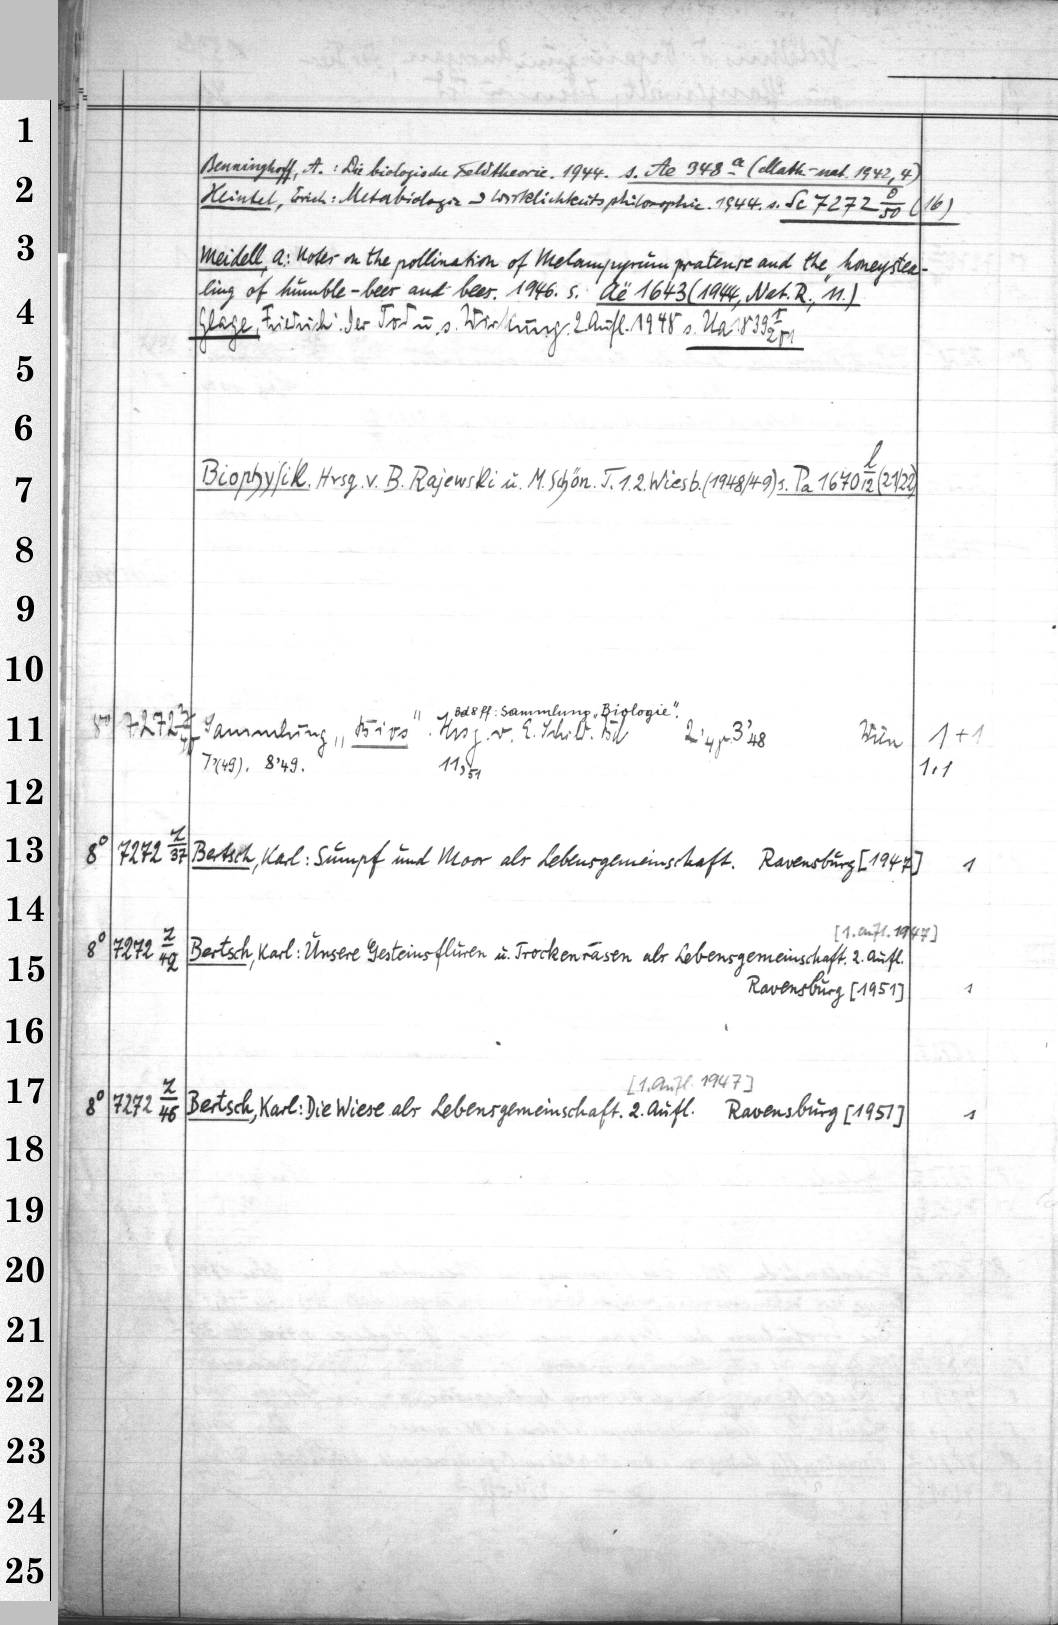 1
2
3
4
5
6
7
8
9
10
11
12
13
14
15
16
17
18
19
20
21
22
23
24
25
Benninghoff, A.: Die biologische Feldtheorie. 1944. s. Ae 348 a (Math-nat. 1942, 4)
Heintel, Erich: Metabiologie u Wirklichkeitsphilosophie. 1944. s. Sc 7272 (16)
Meidell, A: Notes on the pollination of Melampyrum pratense and the "honeystea-
ling of humble-bees and bees. 1946. s. Aë 1643 (1944, Nat. R., 11.)
Glage, Friedrich: Der Tod u. s. Wirkung. 2. Aufl. 1948 s. Ua 1839
Biophysik. Hrsg. v. B. Rajewski u. M. Schön. T. 1.2. Wiesb. (1948/49) s. Pa 1670 l/12 (21/22)
Bd 8 ff: Sammlung „Biologie".
8° 7272 Sammlung „Bios". Hrsg. v. E. Schild. Bd 2, 3'48 Wien 1+1
7'(49). 8'49. 11,51 1,1
8° 7272 z/37 Bertsch, Karl: Sumpf und Moor als Lebensgemeinschaft. Ravensburg [1947] 1
[1. Aufl. 1947]
8° 7272 z/42 Bertsch, Karl: Unsere Gesteinsfluren u. Trockenrasen als Lebensgemeinschaft. 2. Aufl.
Ravensburg [1951] 1
[1. Aufl. 1947]
8° 7272 z/46 Bertsch, Karl: Die Wiese als Lebensgemeinschaft. 2. Aufl. Ravensburg [1951] 1